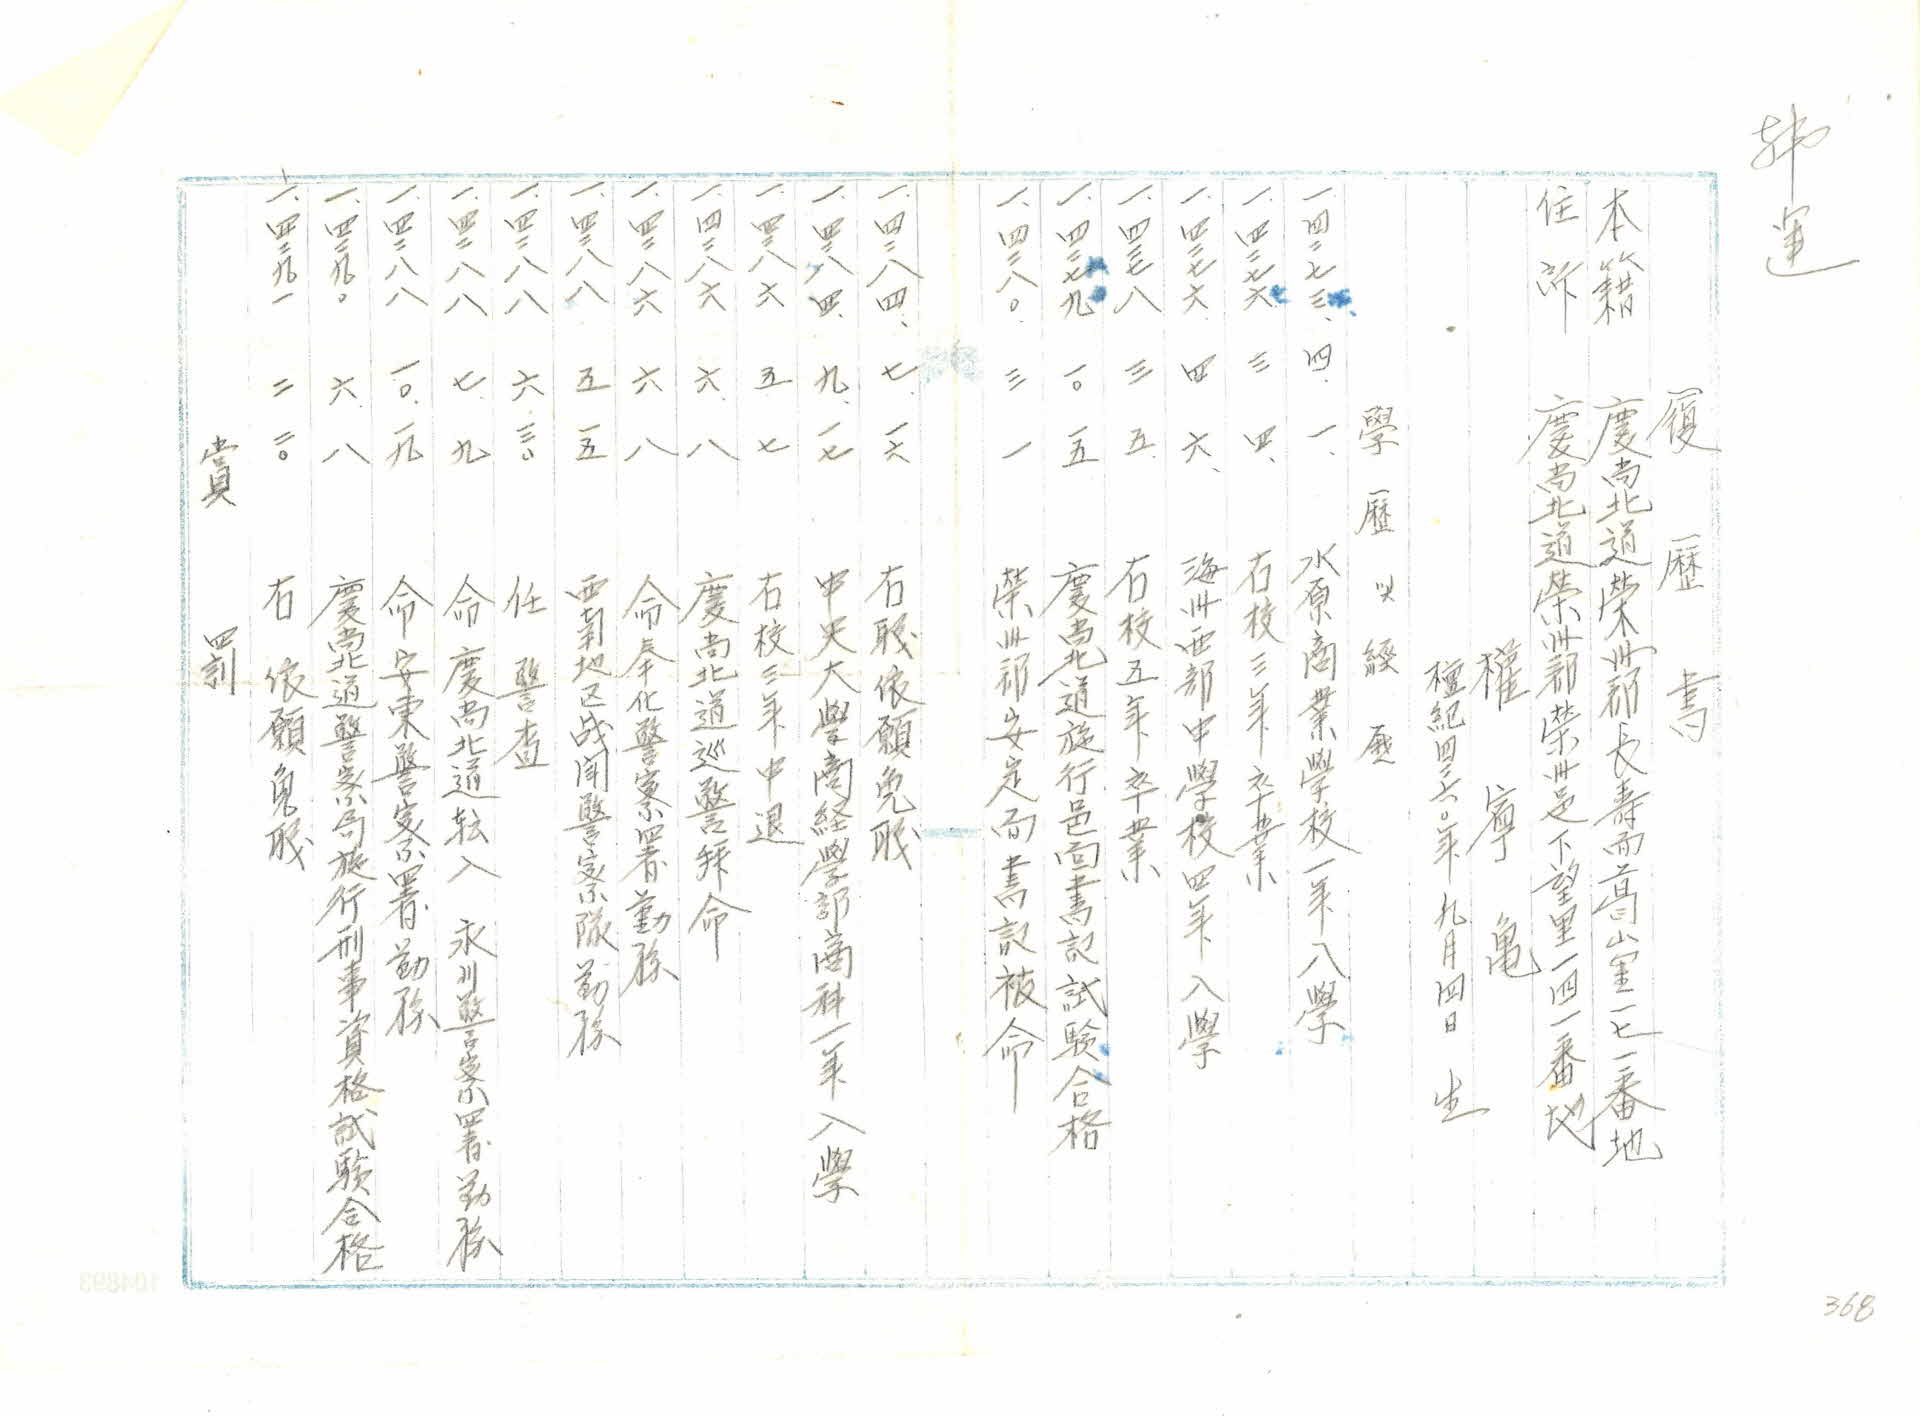 履歷書
本籍 慶尙北道榮州郡長壽面葛山里一七一番地
住所 慶尙北道榮州郡榮州邑下望里一四一番地
權寧龜
檀紀四二六〇年九月四日 生
學歷及經歷
一、四二七三、四、一、 水原商業學校一年入學
一、四二七六、三 四、 右校三年卒業
一、四二七六、四 六、 海州西部中學校四年入學
一、四二七八 三 五 右校五年卒業
一、四二七九、一〇 一五 慶尙北道施行邑面書記試驗合格
一、四二八〇、三 一 榮州郡安定面書記被命
一、四二八四、七、一六 右職依願免職
一、四二八四、九、一七 中央大學商経學部商科一年入學
一、四二八六 五 七 右校三年中退
一、四二八六 六、八 慶尙北道巡警拜命
一、四二八六 六、八 命奉化警察署勤務
一、四二八八 五 一五 西南地区战闘警察隊勤務
一、四二八八 六、三〇 任 警査
一、四二八八 七、九 命 慶尙北道転入 永川警察署勤務
一、四二八八 一〇、一九 命安東警察署勤務
一、四二九〇 六、八 慶尙北道警察局施行刑事資格試驗合格
一、四二九一 二 二〇 右 依願免職
賞 罰
368
104893